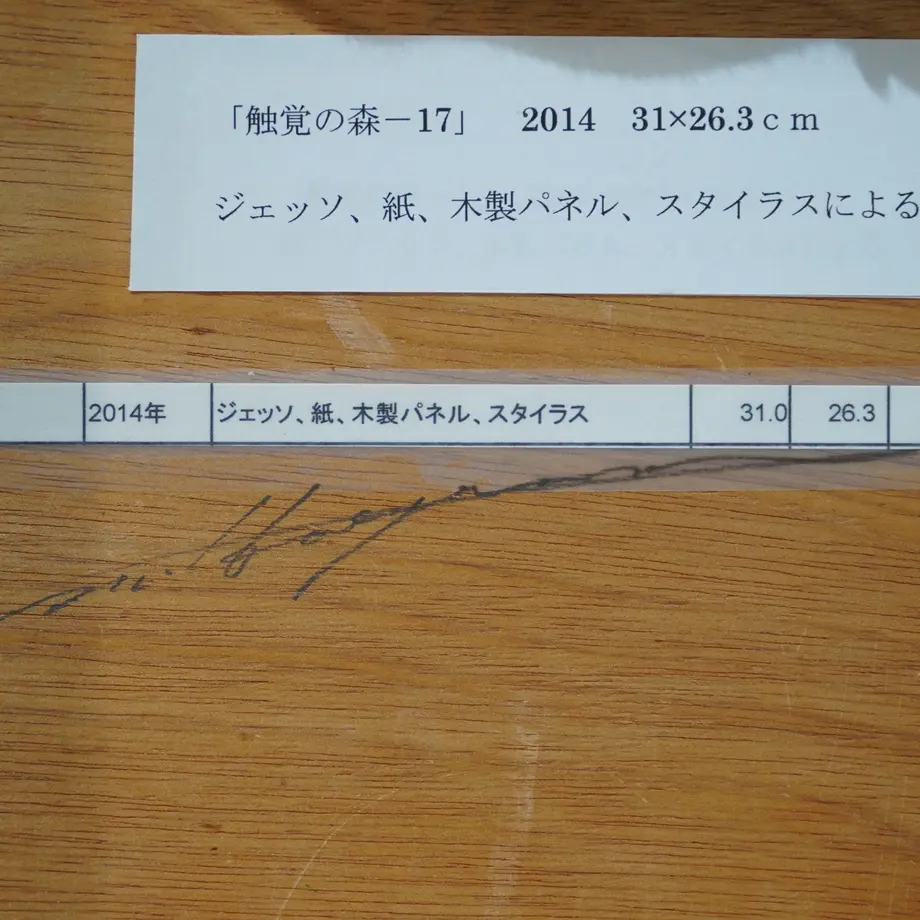 「触覚の森－17」　2014　31×26.3ｃｍ
ジェッソ、紙、木製パネル、スタイラスによる
2014年 ジェッソ、紙、木製パネル、スタイラス 31.0 26.3